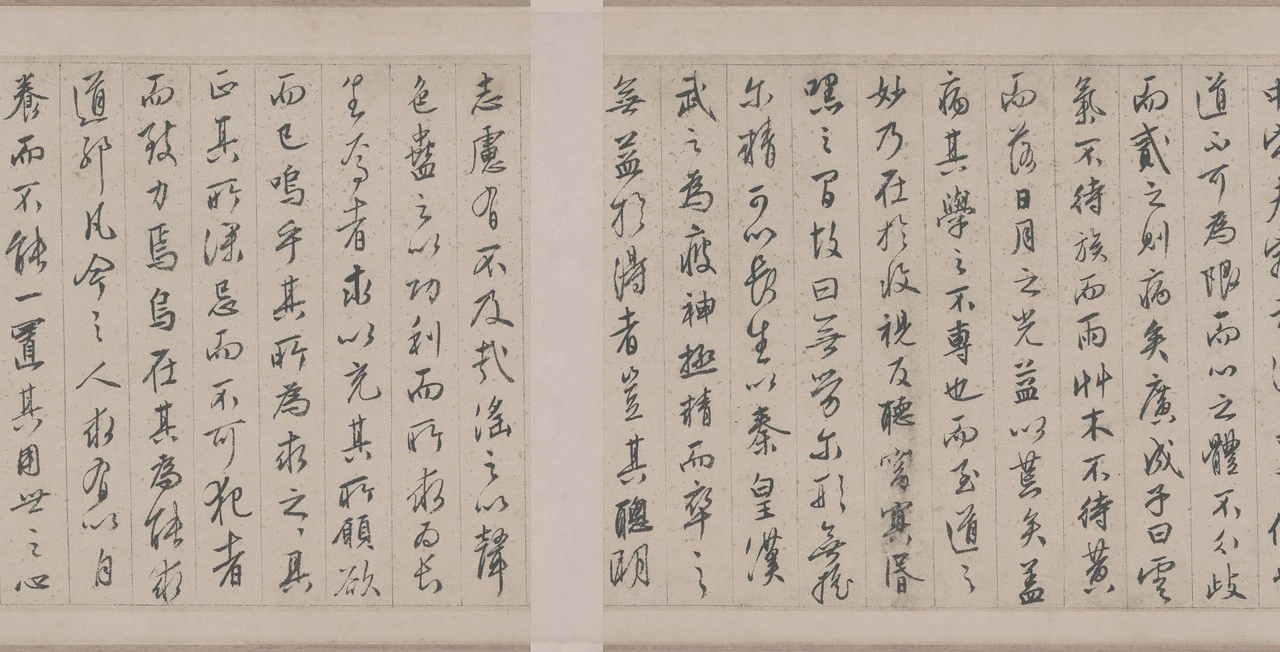 道不可為限而心之體不分歧
而貳之則病矣廣成子曰雲
氣不待族而雨艸木不待黃
而落日月之光益以荒矣蓋
病其學之不專也而至道之
妙乃在於收視反聽窅冥昏
嘿之間故曰無勞尔形無搖
尔精可以長生以秦皇漢
武之為疲神極精而卒之
無益於得者豈其聰明
志慮有不及哉滛之以聲
色蠱之以功利而所求為長
生者求以充其所願欲
而已嗚乎其所為求之之具
正其所深忌而不可犯者
而致力焉烏在其為能求
道邪凡今之人求有以自
養而不能一置其用世之心